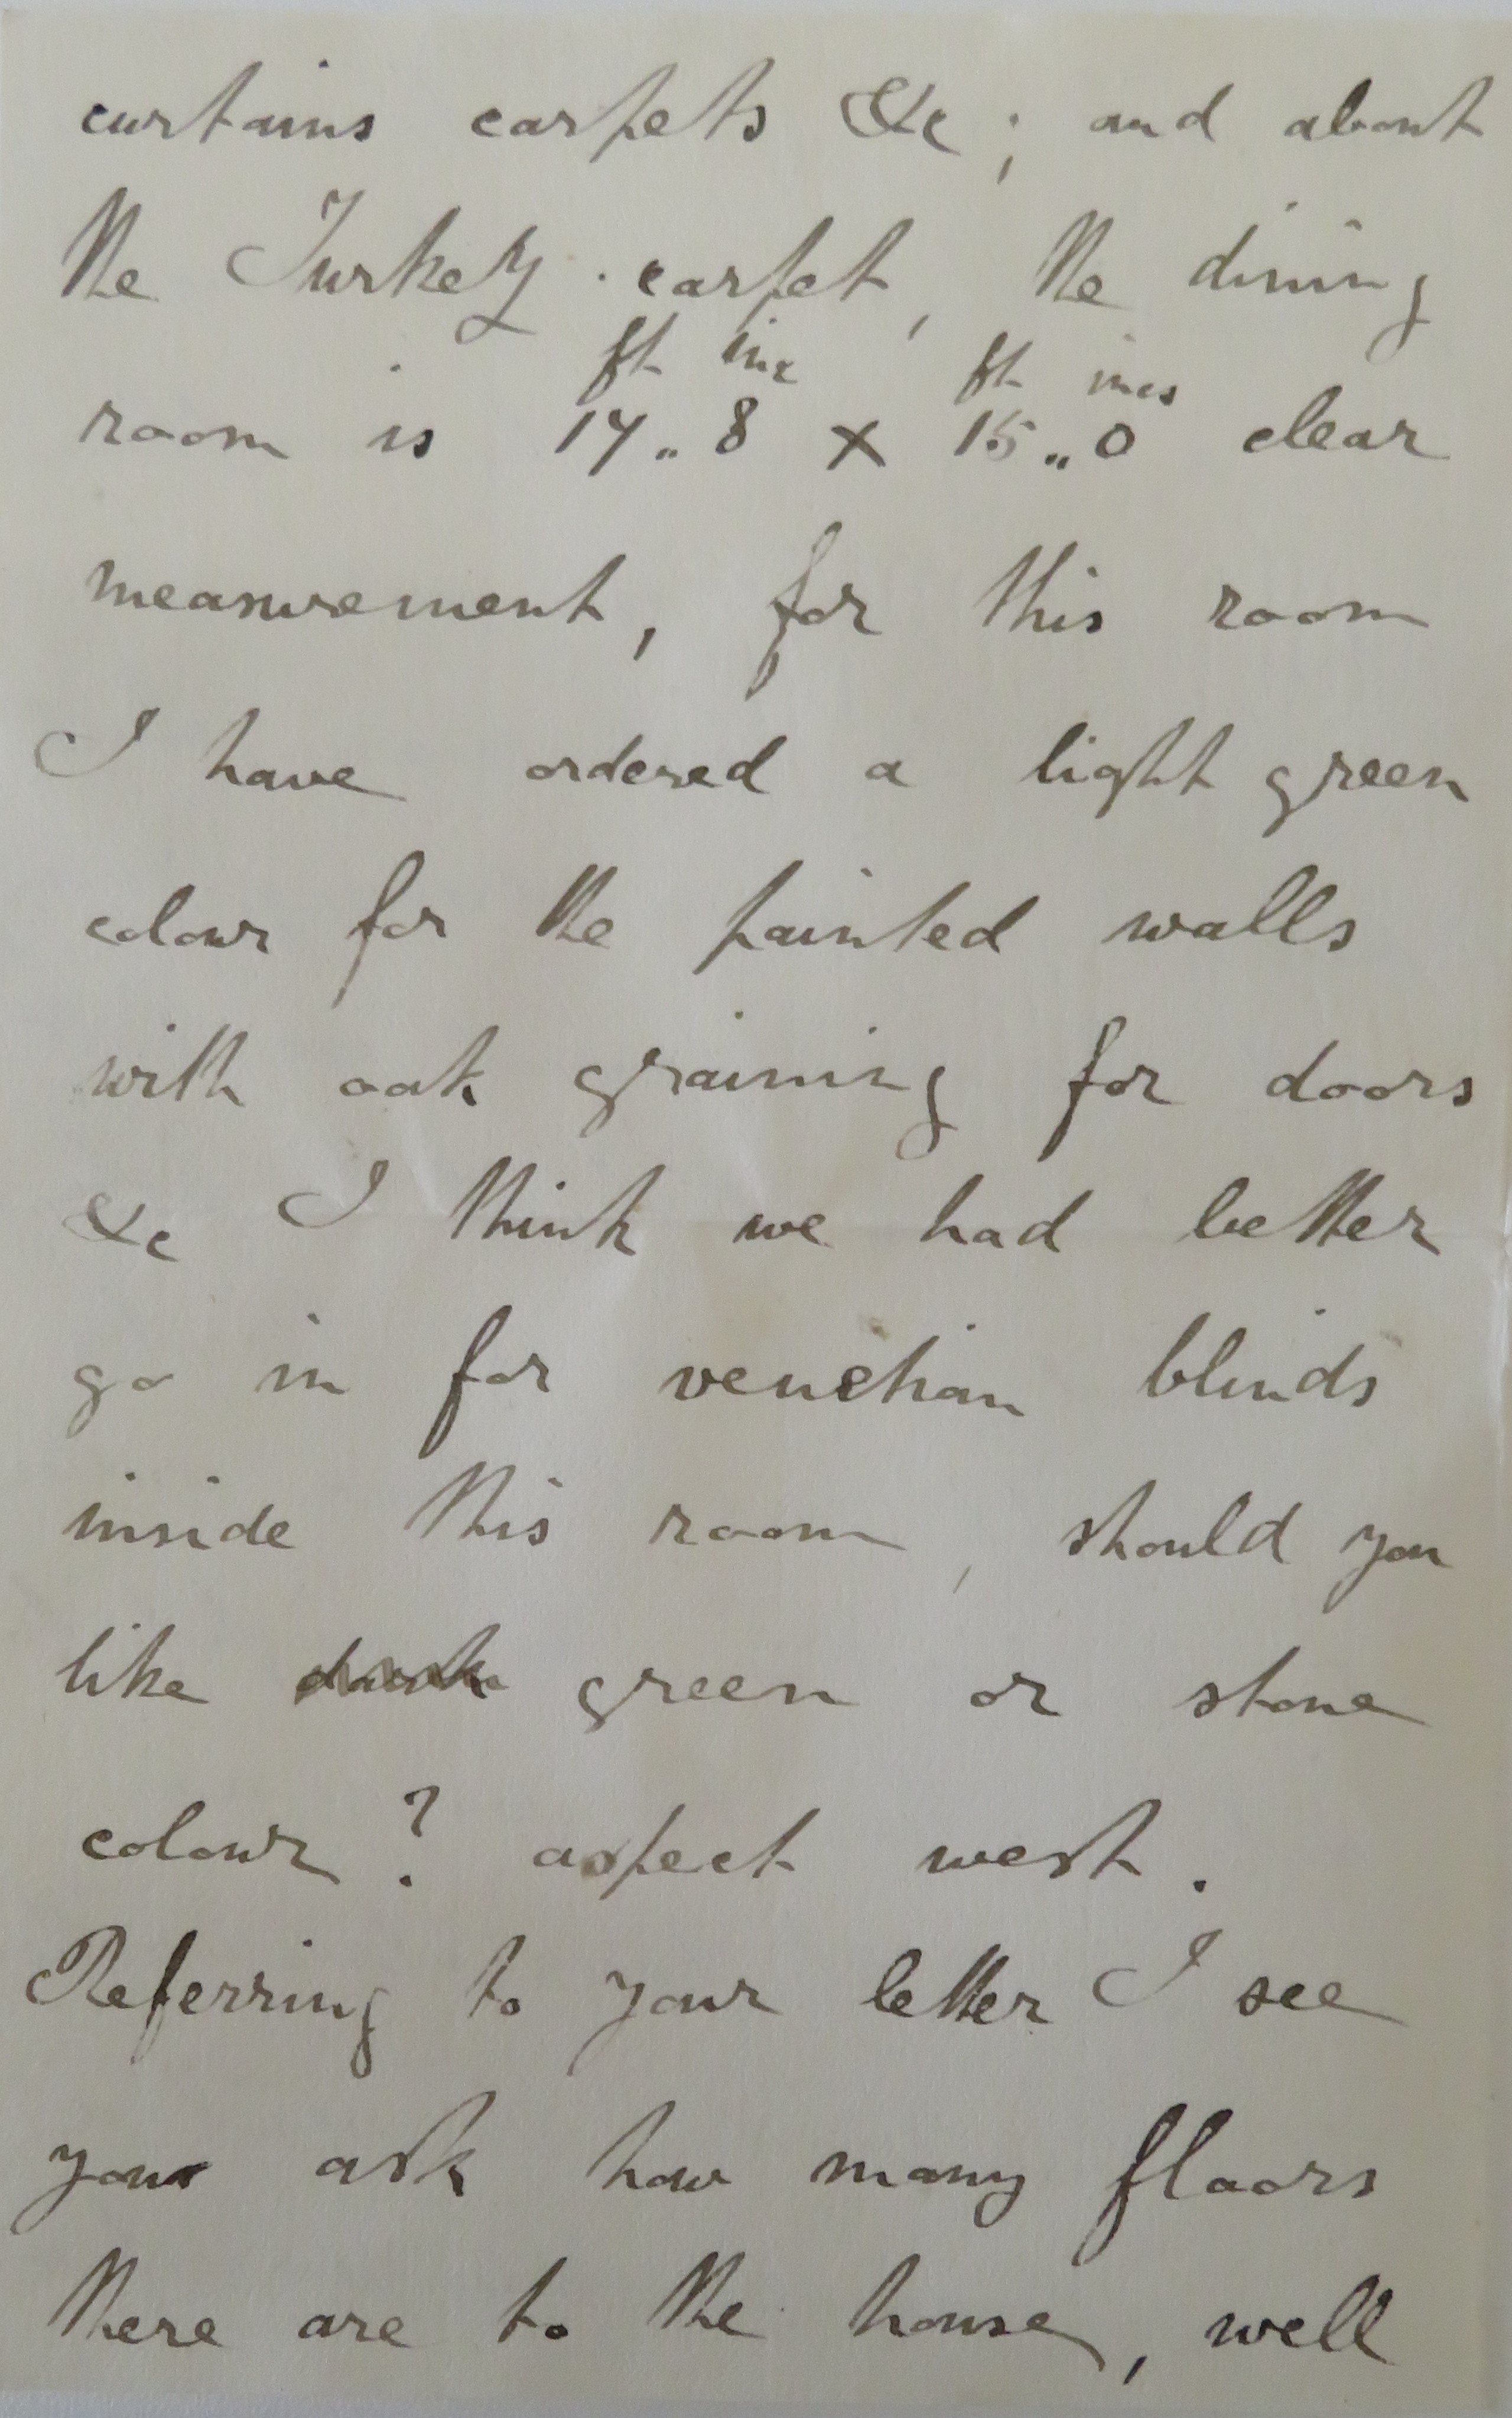 curtains carpets &c ; and about
the Turkey carpet, the dining
ft ins ft incs
room is 17.. 8 x 15.. 0 clear
measurement, for this room
I have ordered a light green
colour for the painted walls
with oak graining for doors
&c I think we had better
go in for venetian blinds
inside this room, should you
like dark green or stone
colour? aspect west.
Referring to your letter I see
you ask how many floors
there are to the house, well